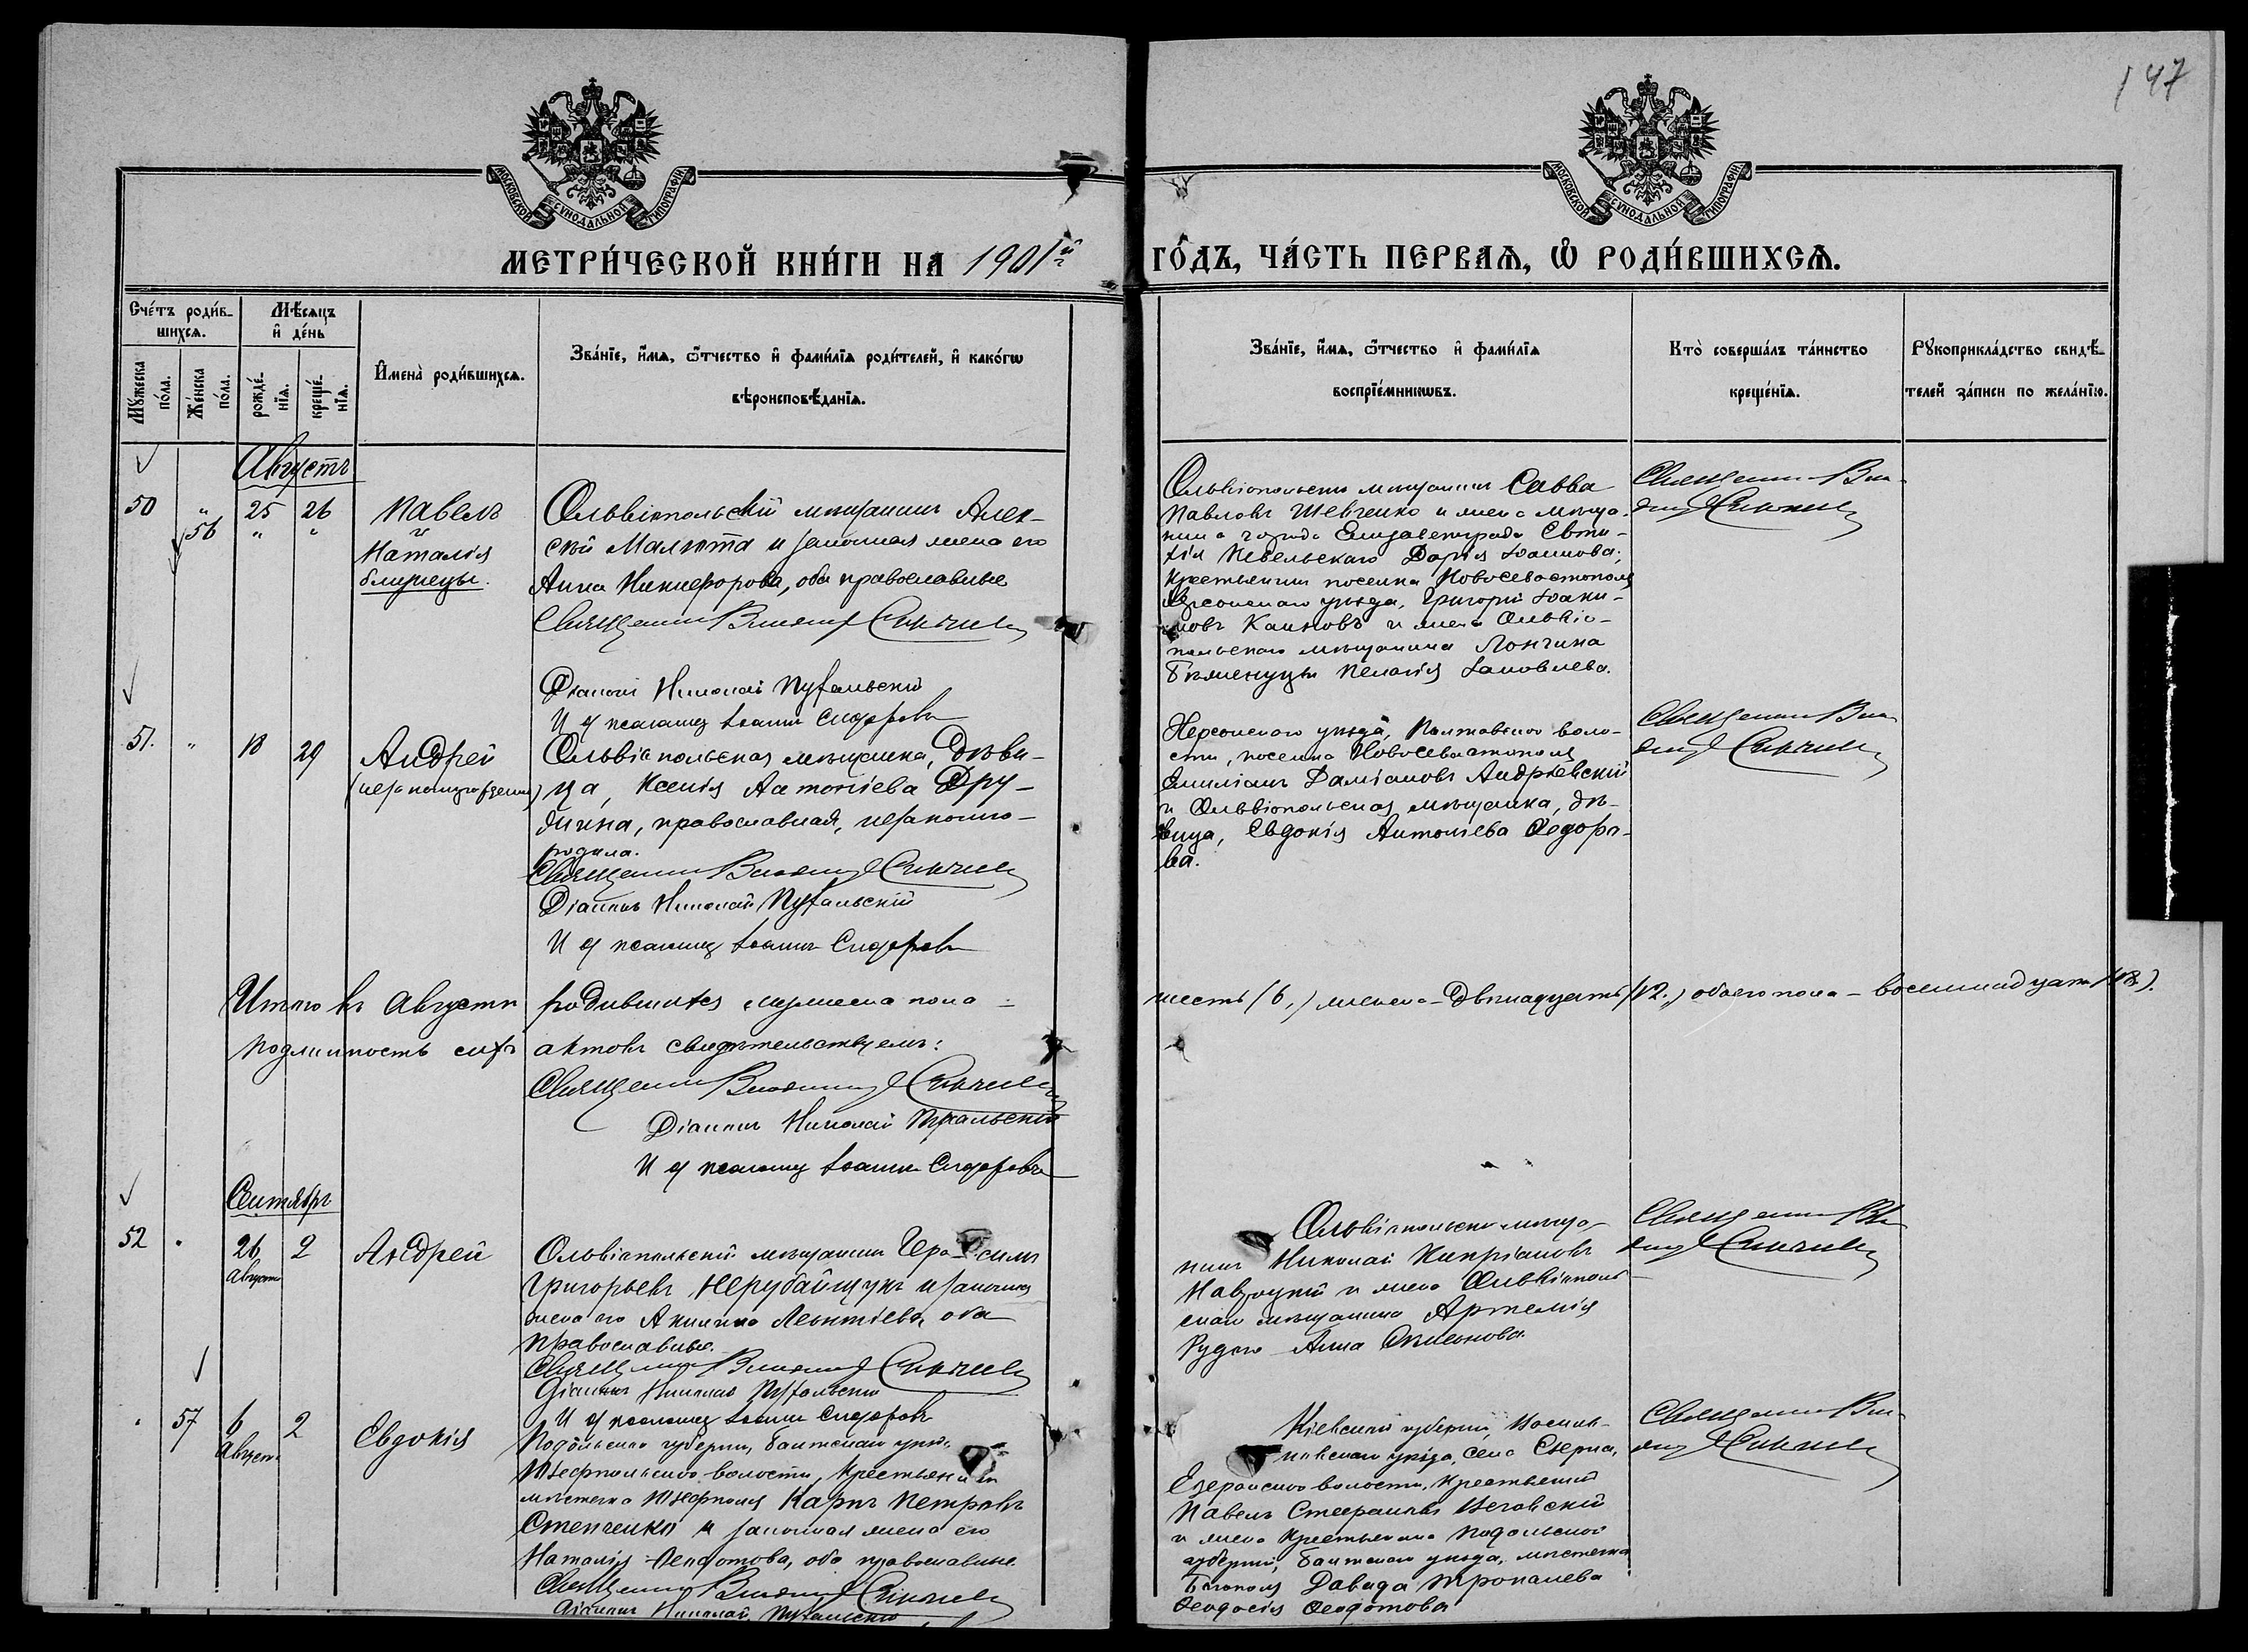 147
МОСКОВСКОЙ СУНОДАЛЬНОЙ ТИПОГРАФІИ
МОСКОВСКОЙ СУНОДАЛЬНОЙ ТИПОГРАФІИ
МЕТРИ́ЧЕСКОЙ КНИ́ГИ НА 1901й
ГО́ДЪ, ЧА́СТЬ ПЕРВАѦ, Ѡ РОДИ́ВШИХСѦ.
Сче́тъ роди́в-
шихсѧ.
Мꙋ́жеска
по́ла.
Же́нска
по́ла.
Мѣ́сяцъ
и҆ де́нь
рожде́-
нїѧ.
креще́-
нїѧ.
И҆мена̀ роди́вшихсѧ.
Зва́нїе, и҆́мѧ, ѻ҆́тчество и҆ фами́лїѧ роди́телей, и҆ како́гѡ
вѣроисповѣ́данїѧ.
Зва́нїе, и҆́мѧ, ѻ҆́тчество и҆ фами́лїѧ
воспрїе́мникѡвъ.
Кто̀ соверша́лъ та́инство
креще́нїѧ.
Рꙋкоприкла́дство свидѣ́-
телей за́писи по жела́нїю.
Августъ
50 " 25 26 Павелъ
56 " " и
Наталія
близнецы.
Ольвіопольскій мѣщанинъ Алек-
сѣй Малюта и законная жена его
Анна Никифорова, оба православные
Священникъ Владимір
Діаконъ Николай
И д псаломщ Іоаннъ Сидоровъ
Ольвіопольскій мѣщанинъ Савва
Павловъ Шевченко и жена мѣща-
нина города Елисаветграда Евти-
хія Дарія Іоаннова;
Крестьянинъ поселка Новосевастополя
Херсонскаго уѣзда, Григорій Іоаки-
мовъ и жена Ольвіо-
польскаго мѣщанина Лонгина
Пелагія Іаковлева.
Священникъ Вла-
димір
51. " 18 29 Андрей
(незаконнорожденный)
Ольвіопольская мѣщанка, дѣви-
ца, Ксенія Антоніева Дру-
, православная, незаконно-
родила.
Священникъ Владимір
Діаконъ Николай
И д псаломщ Іоаннъ Сидоровъ
Херсонскаго уѣзда, Полтавской воло-
сти, поселка Новосевастополя
Емиліанъ Даміановъ Андріевскій
и Ольвіопольская мѣщанка, дѣ-
вица, Евдокія Антоніева Федоро-
ва.
Священникъ Вла-
димір
Итого въ Августѣ родившихся мужеска пола -
шесть (6,) женска - Двѣнадцать (12.,) обоего пола - восемнадцать (18.).
Подлинность сихъ актовъ свидѣтельствуемъ:
Священникъ Владимір
Діаконъ Николай
И д псаломщ Іоаннъ Сидоровъ
Сентябрь
52 " 26 2 Андрей
Августа
Ольвіопольскій мѣщанинъ Герасимъ
Григорьевъ Нерубайщукъ и законная
жена его Акилина Леонтіева, оба
православные.
Священникъ Владимір
Діаконъ Николай
И д псаломщ Іоаннъ Сидоровъ
Ольвіопольскій мѣща-
нинъ Николай Кипріановъ
Навроцкій и жена Ольвіополь-
скаго мѣщанина Артемія
Рудого Анна Симеонова.
Священникъ Вла-
димір
" 57 6 2 Евдокія
Августа
Подольской губерніи, Балтскаго уѣзда
волости, крестьянинъ
мѣстечка Карпъ Петровъ
Степченко и законная жена его
Наталія Феофотова, оба православные
Священникъ Владимір
Діаконъ Николай
Кіевской губерніи,
уѣзда, села
волости, крестьянинъ
Павелъ
и жена крестьянина Подольской
губерніи, Балтскаго уѣзда, мѣстечка
Богополя Давида
Феодосія Феофотова
Священникъ Вла-
димір